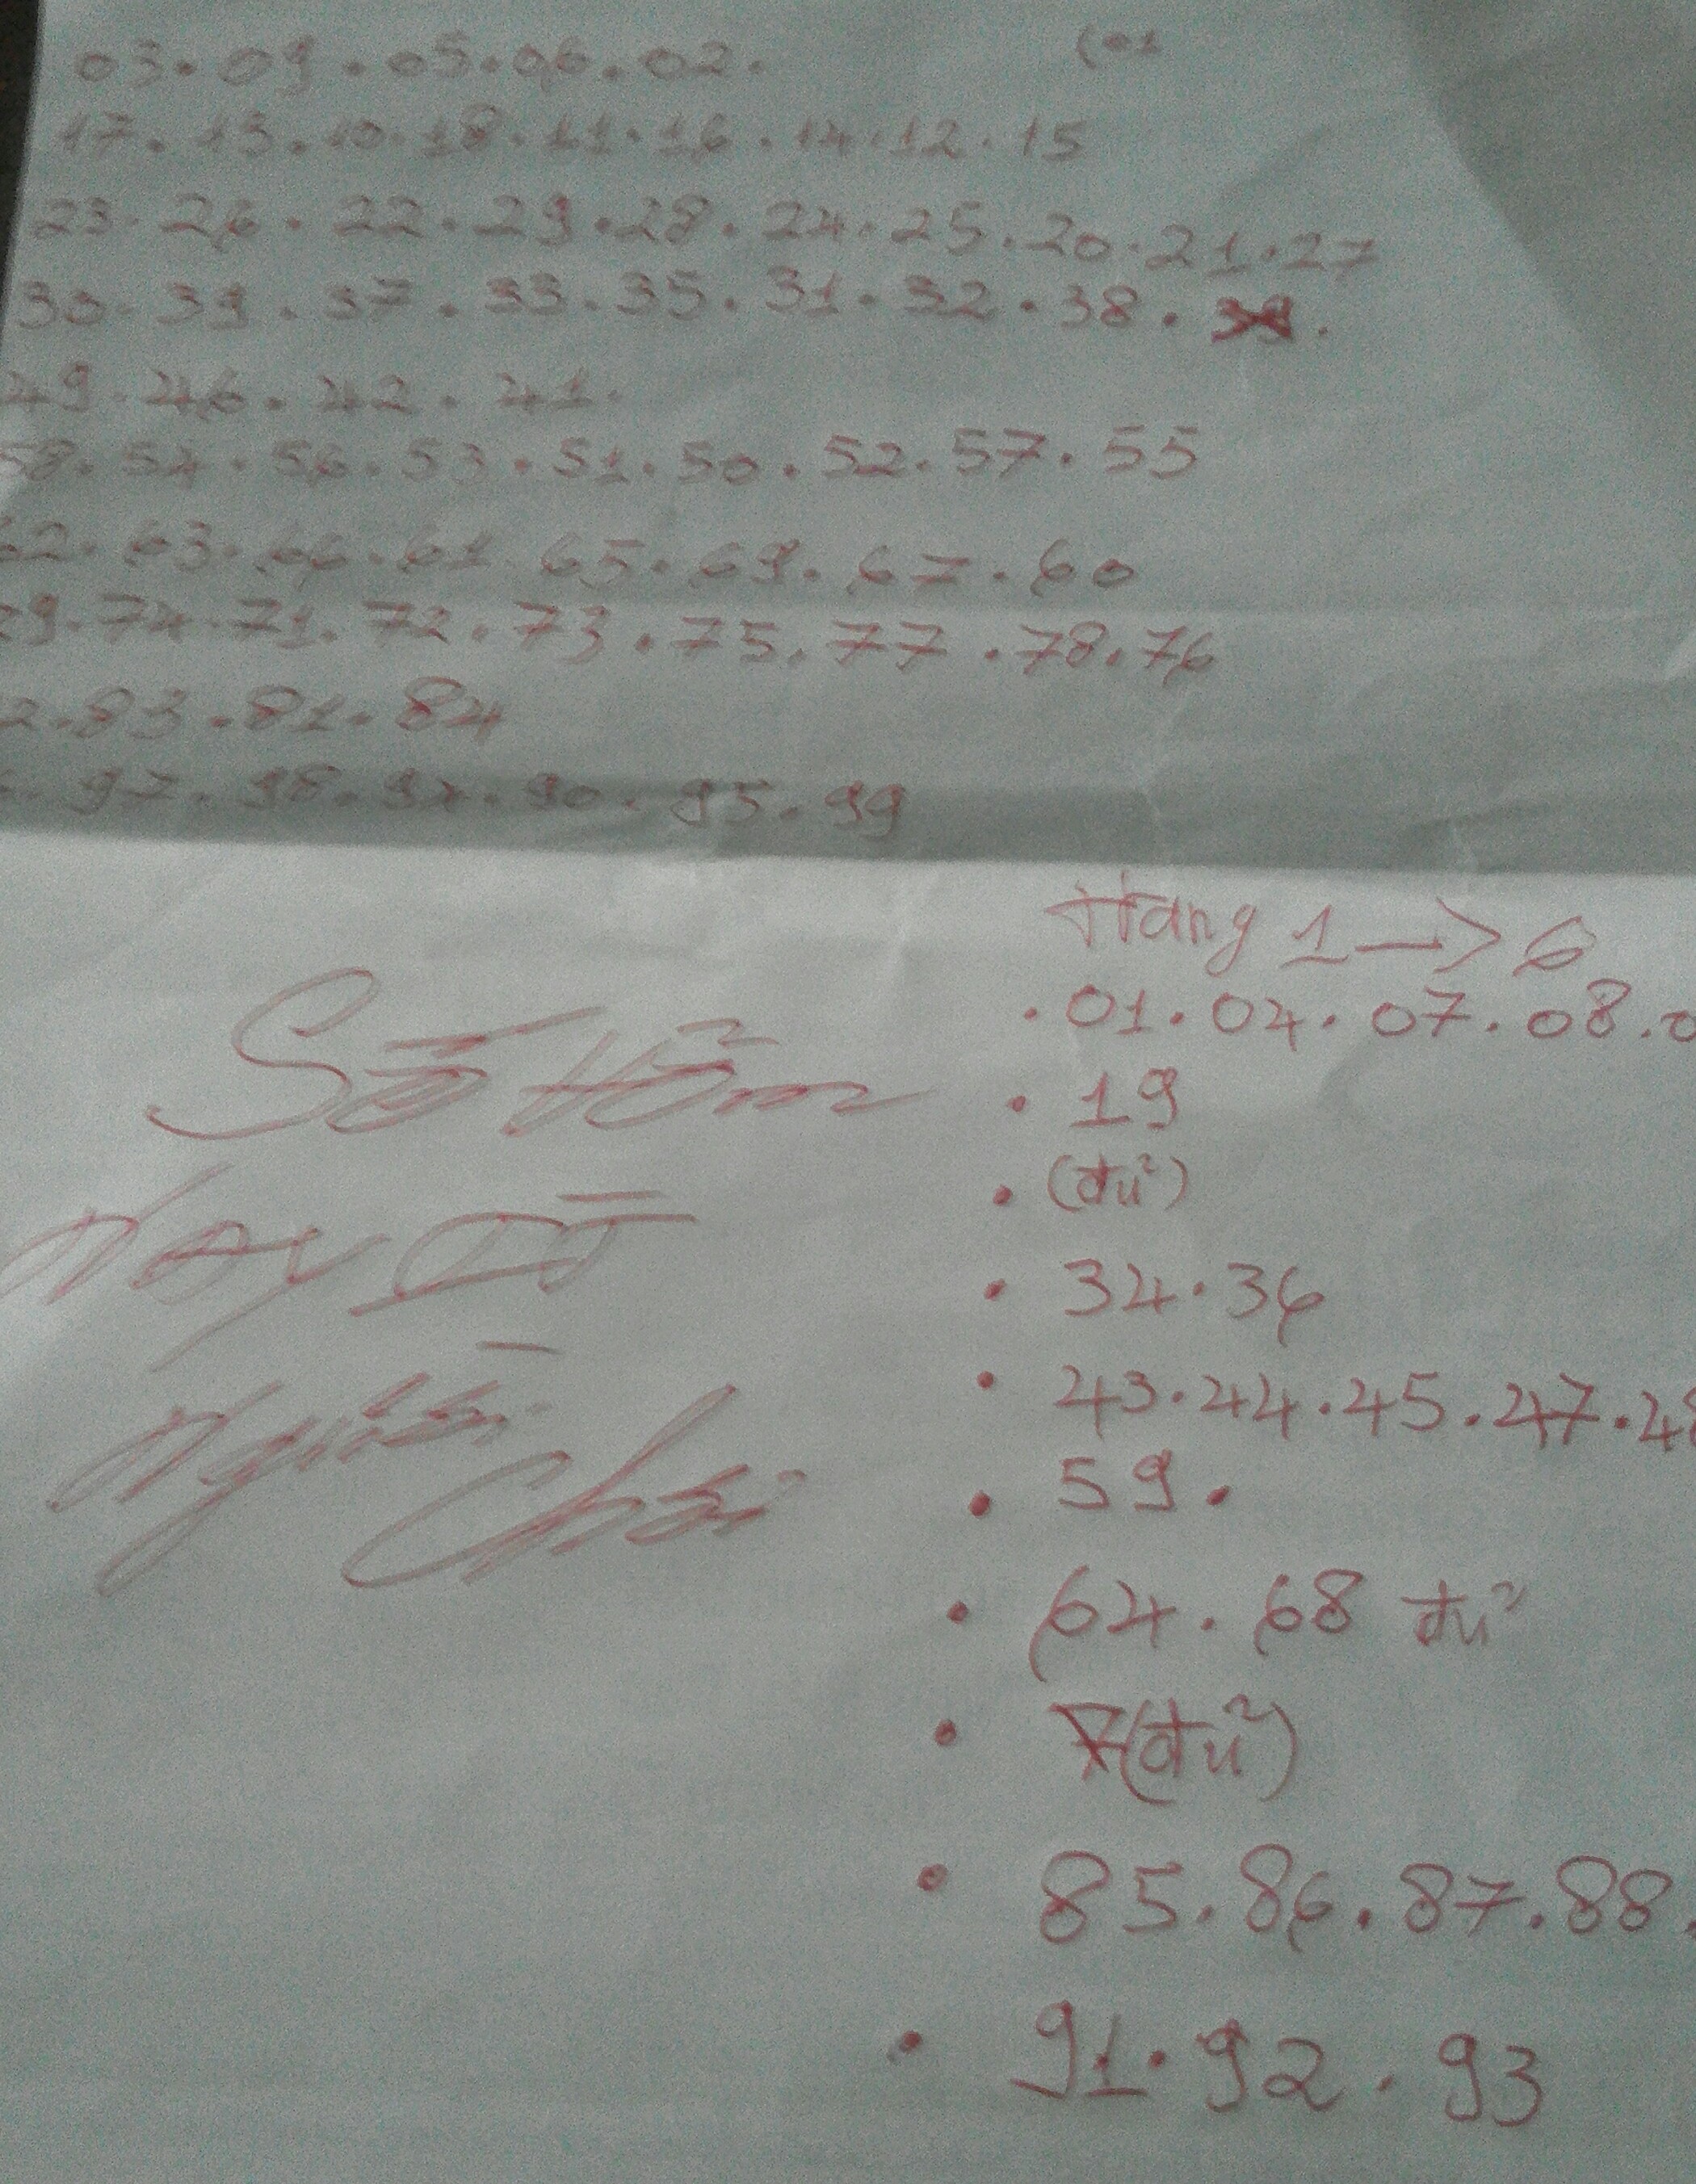 03.09.05.06.02. (01
17.13.10.18.11.16.14.12.15
23.26.22.29.28.24.25.20.21.27
30.39.37.33.35.31.32.38.
49.46.42.41.
58.54.56.53.51.50.52.57.55
62.63.66.61 65.69.67.60
79.74.71.72.73.75.77.78.76
2.83.81.84
97.98.94.90.95.99
Hàng 1 —> 6
.01.04.07.08.0
Số Hôm
. 19
. (đủ)
Nay
. 34.36
. 43.44.45.47.48
Người Chơi
. 59.
. 64.68 đủ
. (đủ)
. 85.86.87.88.
. 91.92.93